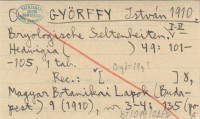 GYÖRFFY István 1910.
I-II
Bryologische Seltenheiten,
Hedwigia ( ) 49: 101-
-105, 1 tab.
Rec.: [ ] 8,
Magyar Botanikai Lapok (Buda-
pest) 9 (1910), nr. 3-4: 135